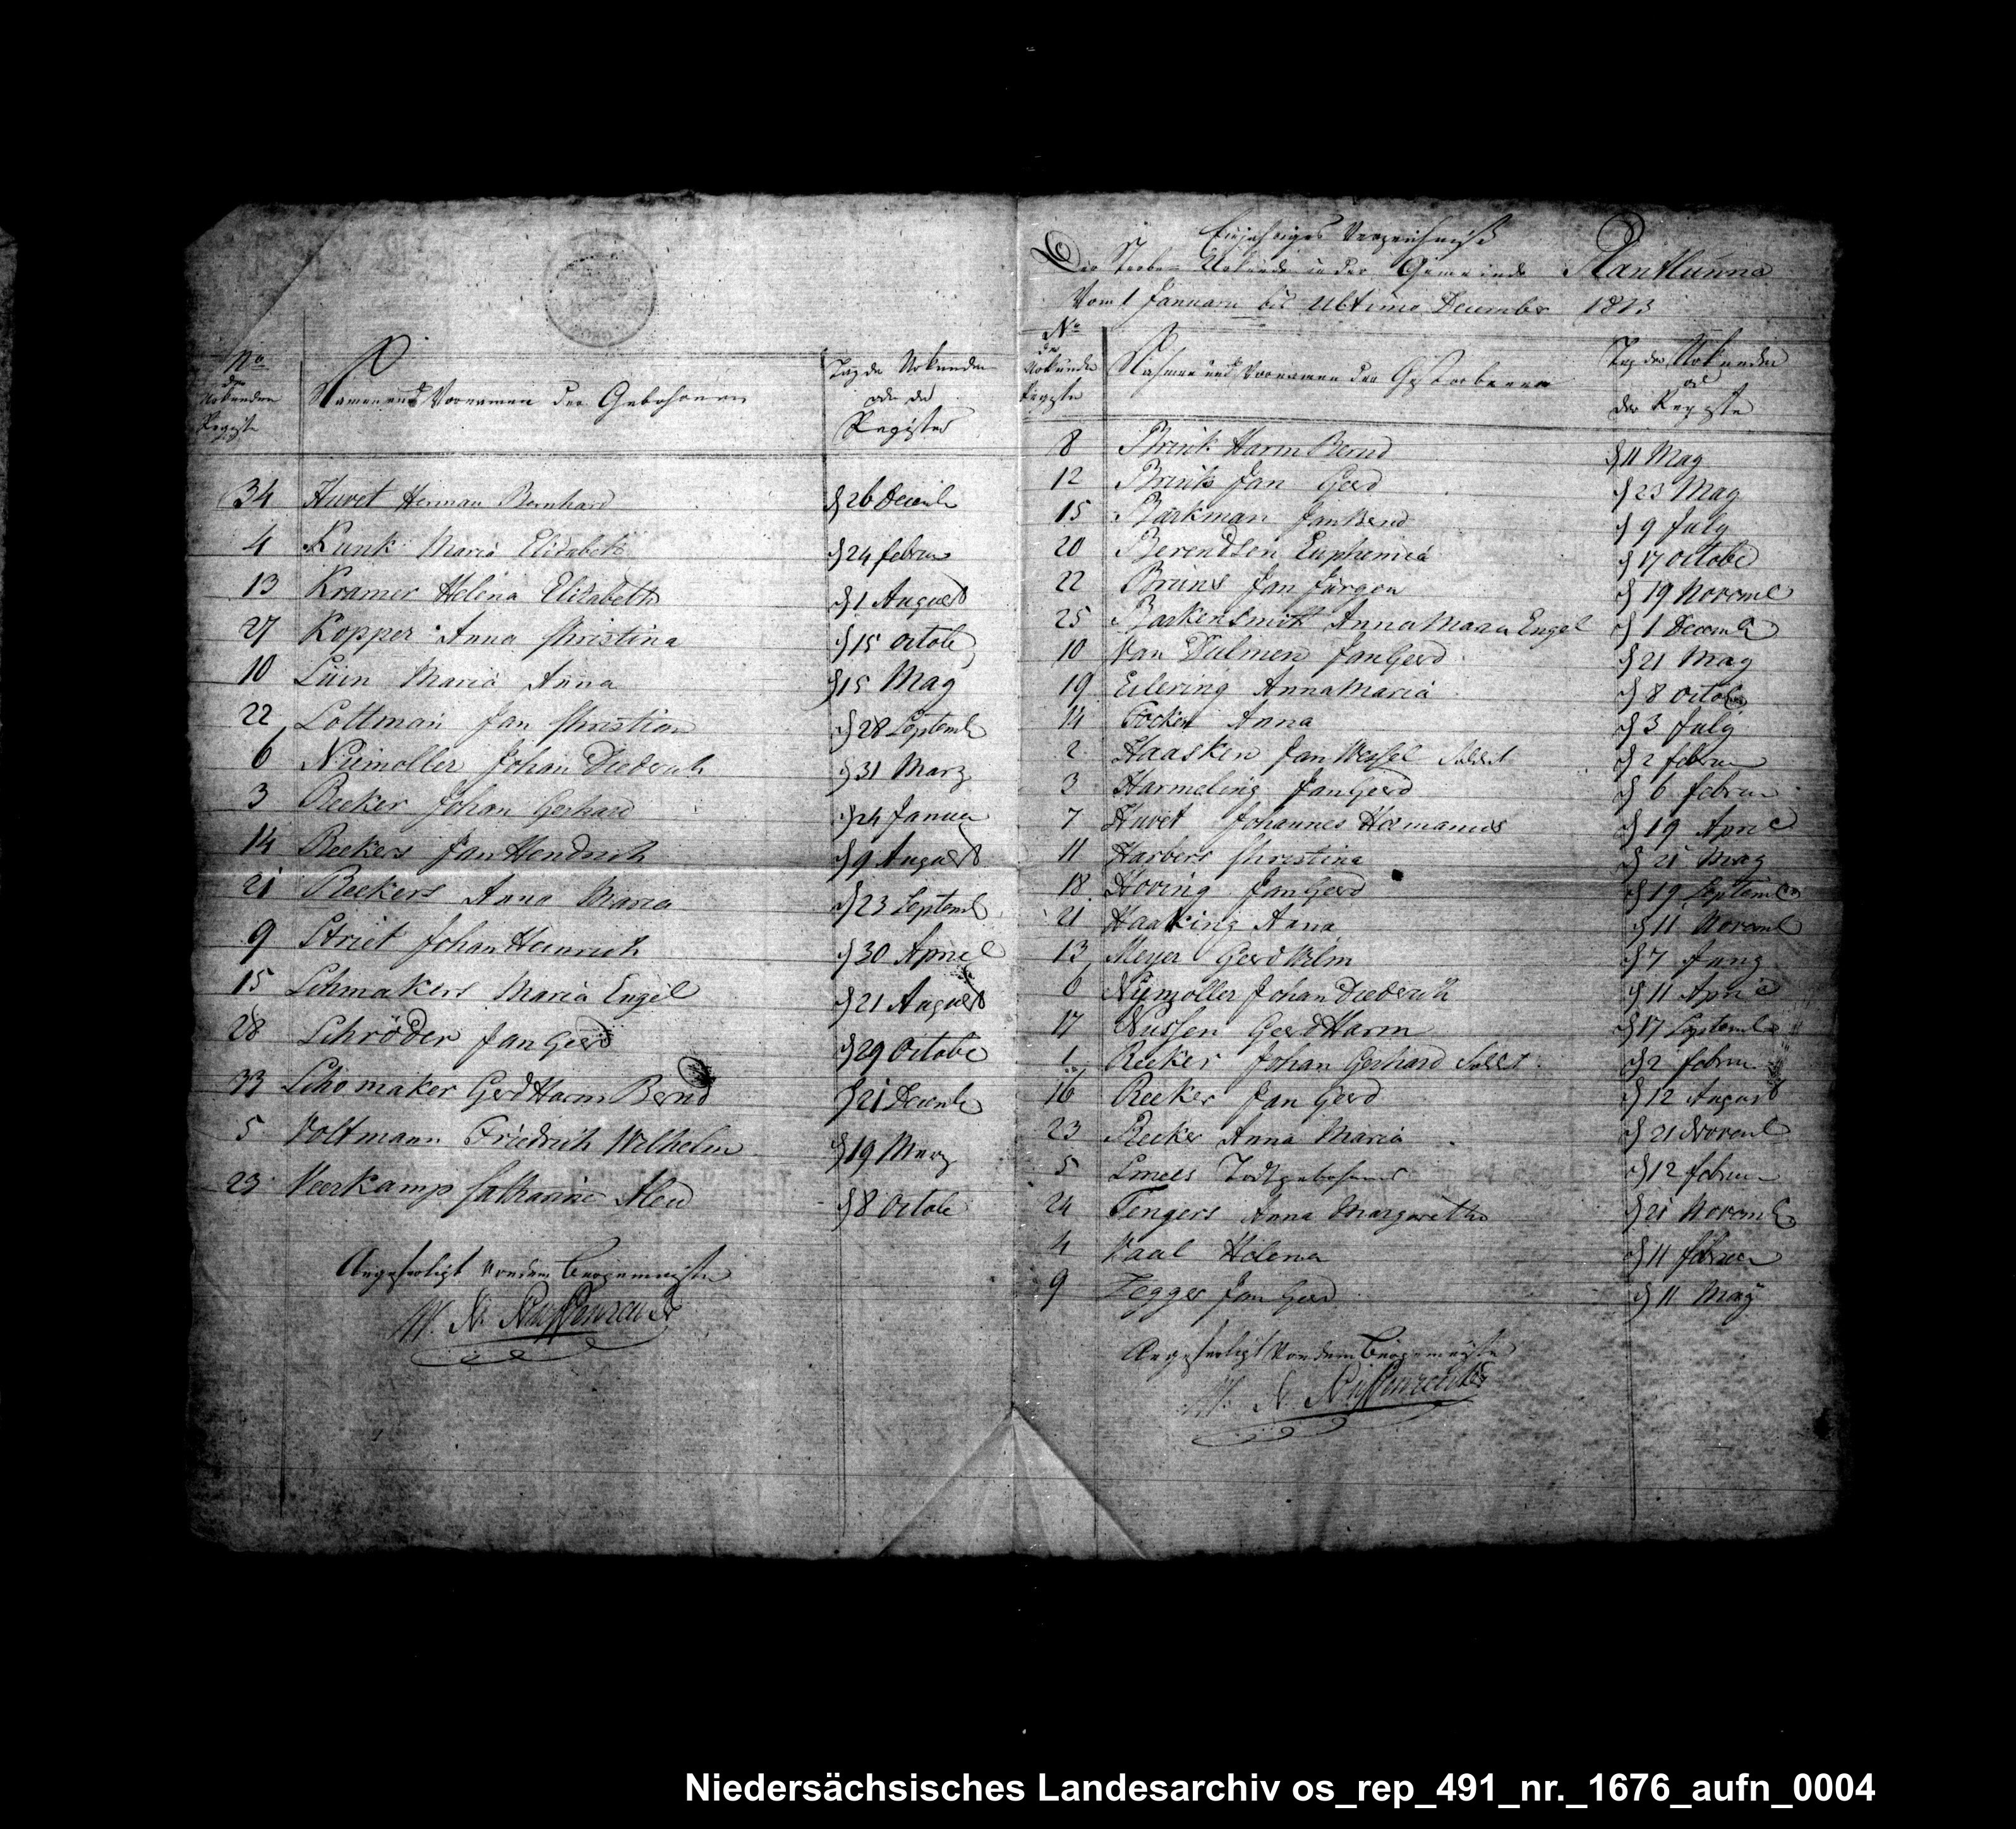 No
der
Urkunden
Registe
Namen und Vornamen der Gebohrenen
Tag der Urkunden
oder der
Register
34 Huvet Herman Bernhard d 26 Decemb
4 Kunk Maria Elisabeth d 24 febru
13 Kramer Helena Elisabeth d 1 August
27 Kopper Anna Christina d 15 Octob
10 Lüin Maria Anna d 15 May
22 Lottman Jan Christian d 28 Septemb
6 Niemoller Johan Diederich d 31 Marz
3 Reeker Johan Gerhard d 24 Januar
14 Reekers Jan Hendrich d 9 August
21 Reekers Anna Maria d 23 Septemb
9 Striet Johan Heinrich d 30 April
15 Schmakers Maria Engel d 21 August
28 Schröder Jan Gerd d 29 Octobe
33 Schomaker Gerd Harm Bernd d 21 Decemb
5 Voltmann Friedrich Wilhelm d 19 Merz
23 Veerkamp Catharine Aleid d 8 Octobe
Angefertigt von dem Burgemeister
Einjahriges Verzeichniß
Der Sterbe Urkunde in der Gemeinde Plantlünne
Vom 1 Januari bis Ultimo December 1813
No
der
Urkunde
Registe
Nahmen und Vornamen der Gestorbenen
Tag der Urkunden
od
der Registe
8 Brink Harm Bernd d 11 May
12 Brink Jan Gerd d 23 May
15 Barkman Jan Bernd d 9 July
20 Berendsen Euphemia d 17 Octobe
22 Bruns Jan Jürgen d 19 Novemb
25 Barkensmitt Anna Maria Engel d 1 Decemb
10 Van Dulmen Jan Gerd d 21 May
19 Eilering Anna Maria d 8 Octob
14 Focken Anna d 3 July
2 Haasken Jan Wessel d 2 febru
3 Harmeling Jan Gerd d 6 febru
7 Huvet Johannes Hermanus d 19 April
11 Harbers Christina d 21 May
18 Hoving Jan Gerd d 19 Septemb
21 Haaking Anna d 11 Novemb
13 Meyer Gerd Wilm d 7 Juny
6 Nijmoller Johan Diederich d 11 April
17 Nussen Gerd Harm d 17 Septemb
1 Reeker Johan Gerhard d 2 febru
16 Reeker Jan Gerd d 12 August
23 Reeker Anna Maria d 21 Novemb
5 Smees Todtgebohren d 12 febru
24 Tengers Anna Margaretha d 21 Novemb
4 Vaal Helena d 11 febru
9 Zegger Jan Gerd d 11 May
Angefertigt von dem Burgemeister
Niedersächsisches Landesarchiv os_rep_491_nr._1676_aufn_0004